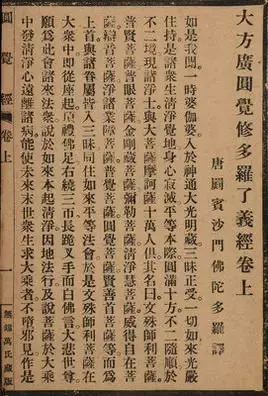 大方廣圓覺修多羅了義經卷上
唐罽賓沙門佛陀多羅譯
如是我聞一時婆伽婆入於神通大光明藏三昧正受一切如來光嚴
住持是諸衆生清淨覺地身心寂滅平等本際圓滿十方不二隨順於
不二境現諸淨土與大菩薩摩訶薩十萬人俱其名曰文殊師利菩薩
普賢菩薩普眼菩薩金剛藏菩薩彌勒菩薩清淨慧菩薩威德自在菩
薩辯音菩薩淨諸業障菩薩普覺菩薩圓覺菩薩賢善首菩薩等而爲
上首與諸眷屬皆入三昧同住如來平等法會於是文殊師利菩薩在
大衆中即從座起頂禮佛足右繞三市長跪叉手而白佛言大悲世尊
願爲此會諸來法衆說於如來本起清淨因地法行及說菩薩於大乘
中發清淨心遠離諸病能使未來末世衆生求大乘者不墮邪見作是
圓覺經 卷上
一
無錫萬氏藏版